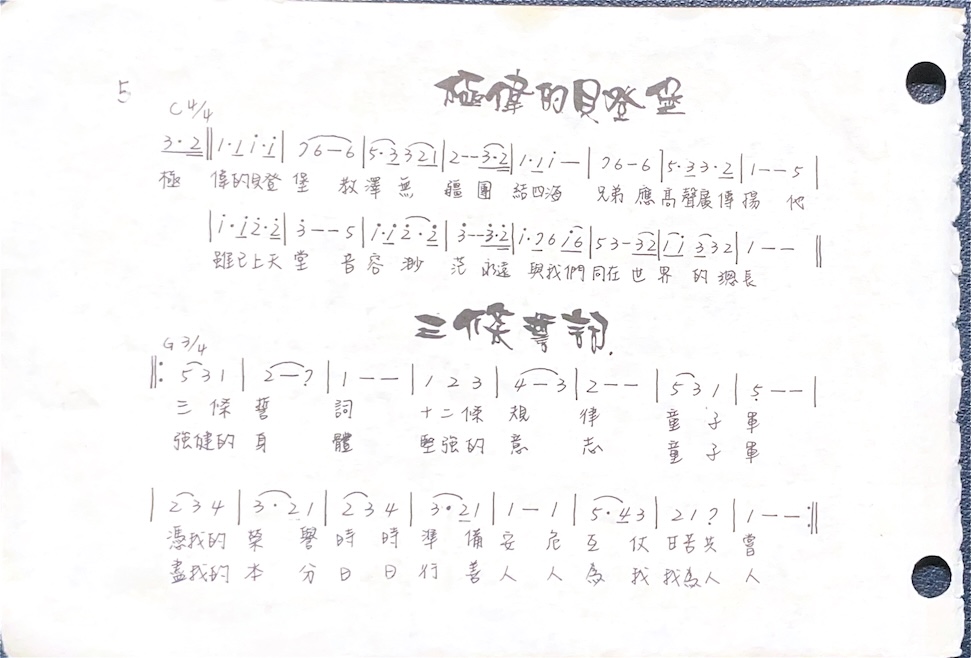 5
極偉的貝登堡
C 4/4
3·2‖1·1 i·i|76—6|5·3 321|2--3·2|1·1 i—|76-6|5·3 3·2|1--5|
極 偉的貝登堡 教澤無 疆團 結四海 兄弟應高聲展傳揚 他
|i·i 2·2|3--5|i·i 2·2|3--3·2|i·76 i6|53-32|ii 332|1--‖
雖已上天堂 音容渺 茫 永遠 與我們同在世界 的總長
三條誓詞.
G 3/4
‖: 531|2—7|1--|123|4—3|2--|531|5--|
三條誓 詞 十二條規 律 童子軍
強健的身 體 堅強的意 志 童子軍
|234|3·21|234|3·21|1—1|5·43|217|1--:‖
憑我的榮 譽時時準 備安危互仗甘苦共嘗
盡我的本 分日日行善人人為我我為人人